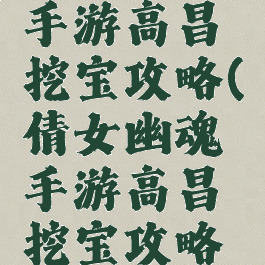 手游高昌
挖宝攻略(
倩女幽魂
手游高昌
挖宝攻略